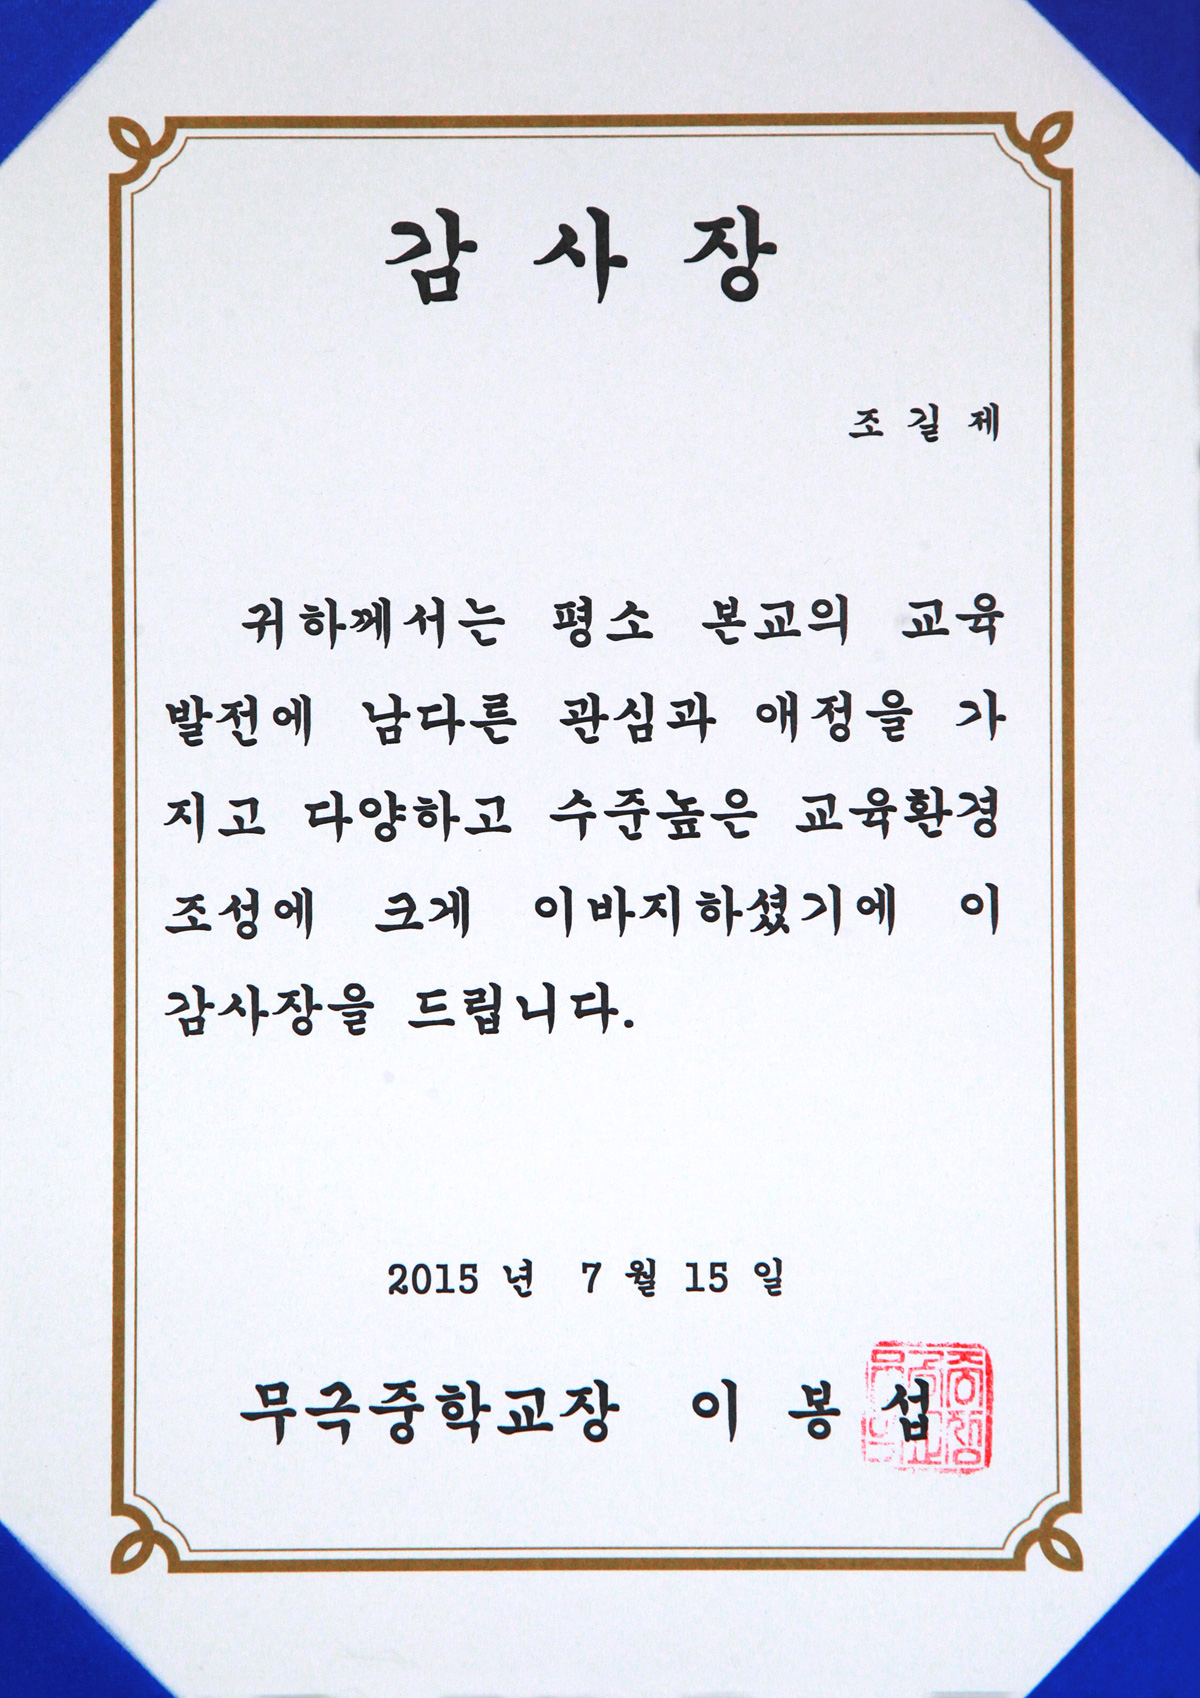 감 사 장
조 길 제
귀하께서는 평소 본교의 교육
발전에 남다른 관심과 애정을 가
지고 다양하고 수준높은 교육환경
조성에 크게 이바지하셨기에 이
감사장을 드립니다.
2015 년 7 월 15 일
무극중학교장 이 봉 섭